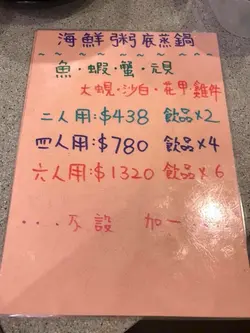 海鮮粥底蒸鍋
魚·蝦·蟹·貝
大蜆·沙白·花甲·雞件
二人用:$438 飲品×2
四人用:$780 飲品×4
六人用:$1320 飲品×6
...不設 加一...